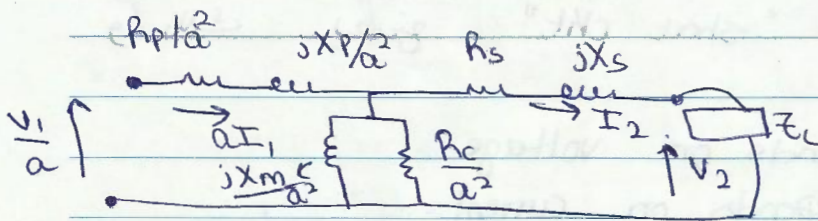 Rp/a² jXp/a² Rs jXs
V₁/a aI₁ I₂ ZL
jXm/a² Rc/a² V₂